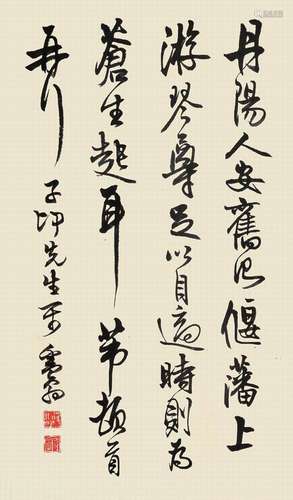 丹陽人安舊偃藩上
游琴尊足以自適時則為
蒼生起耳 芾頓首
再行 子坤先生正